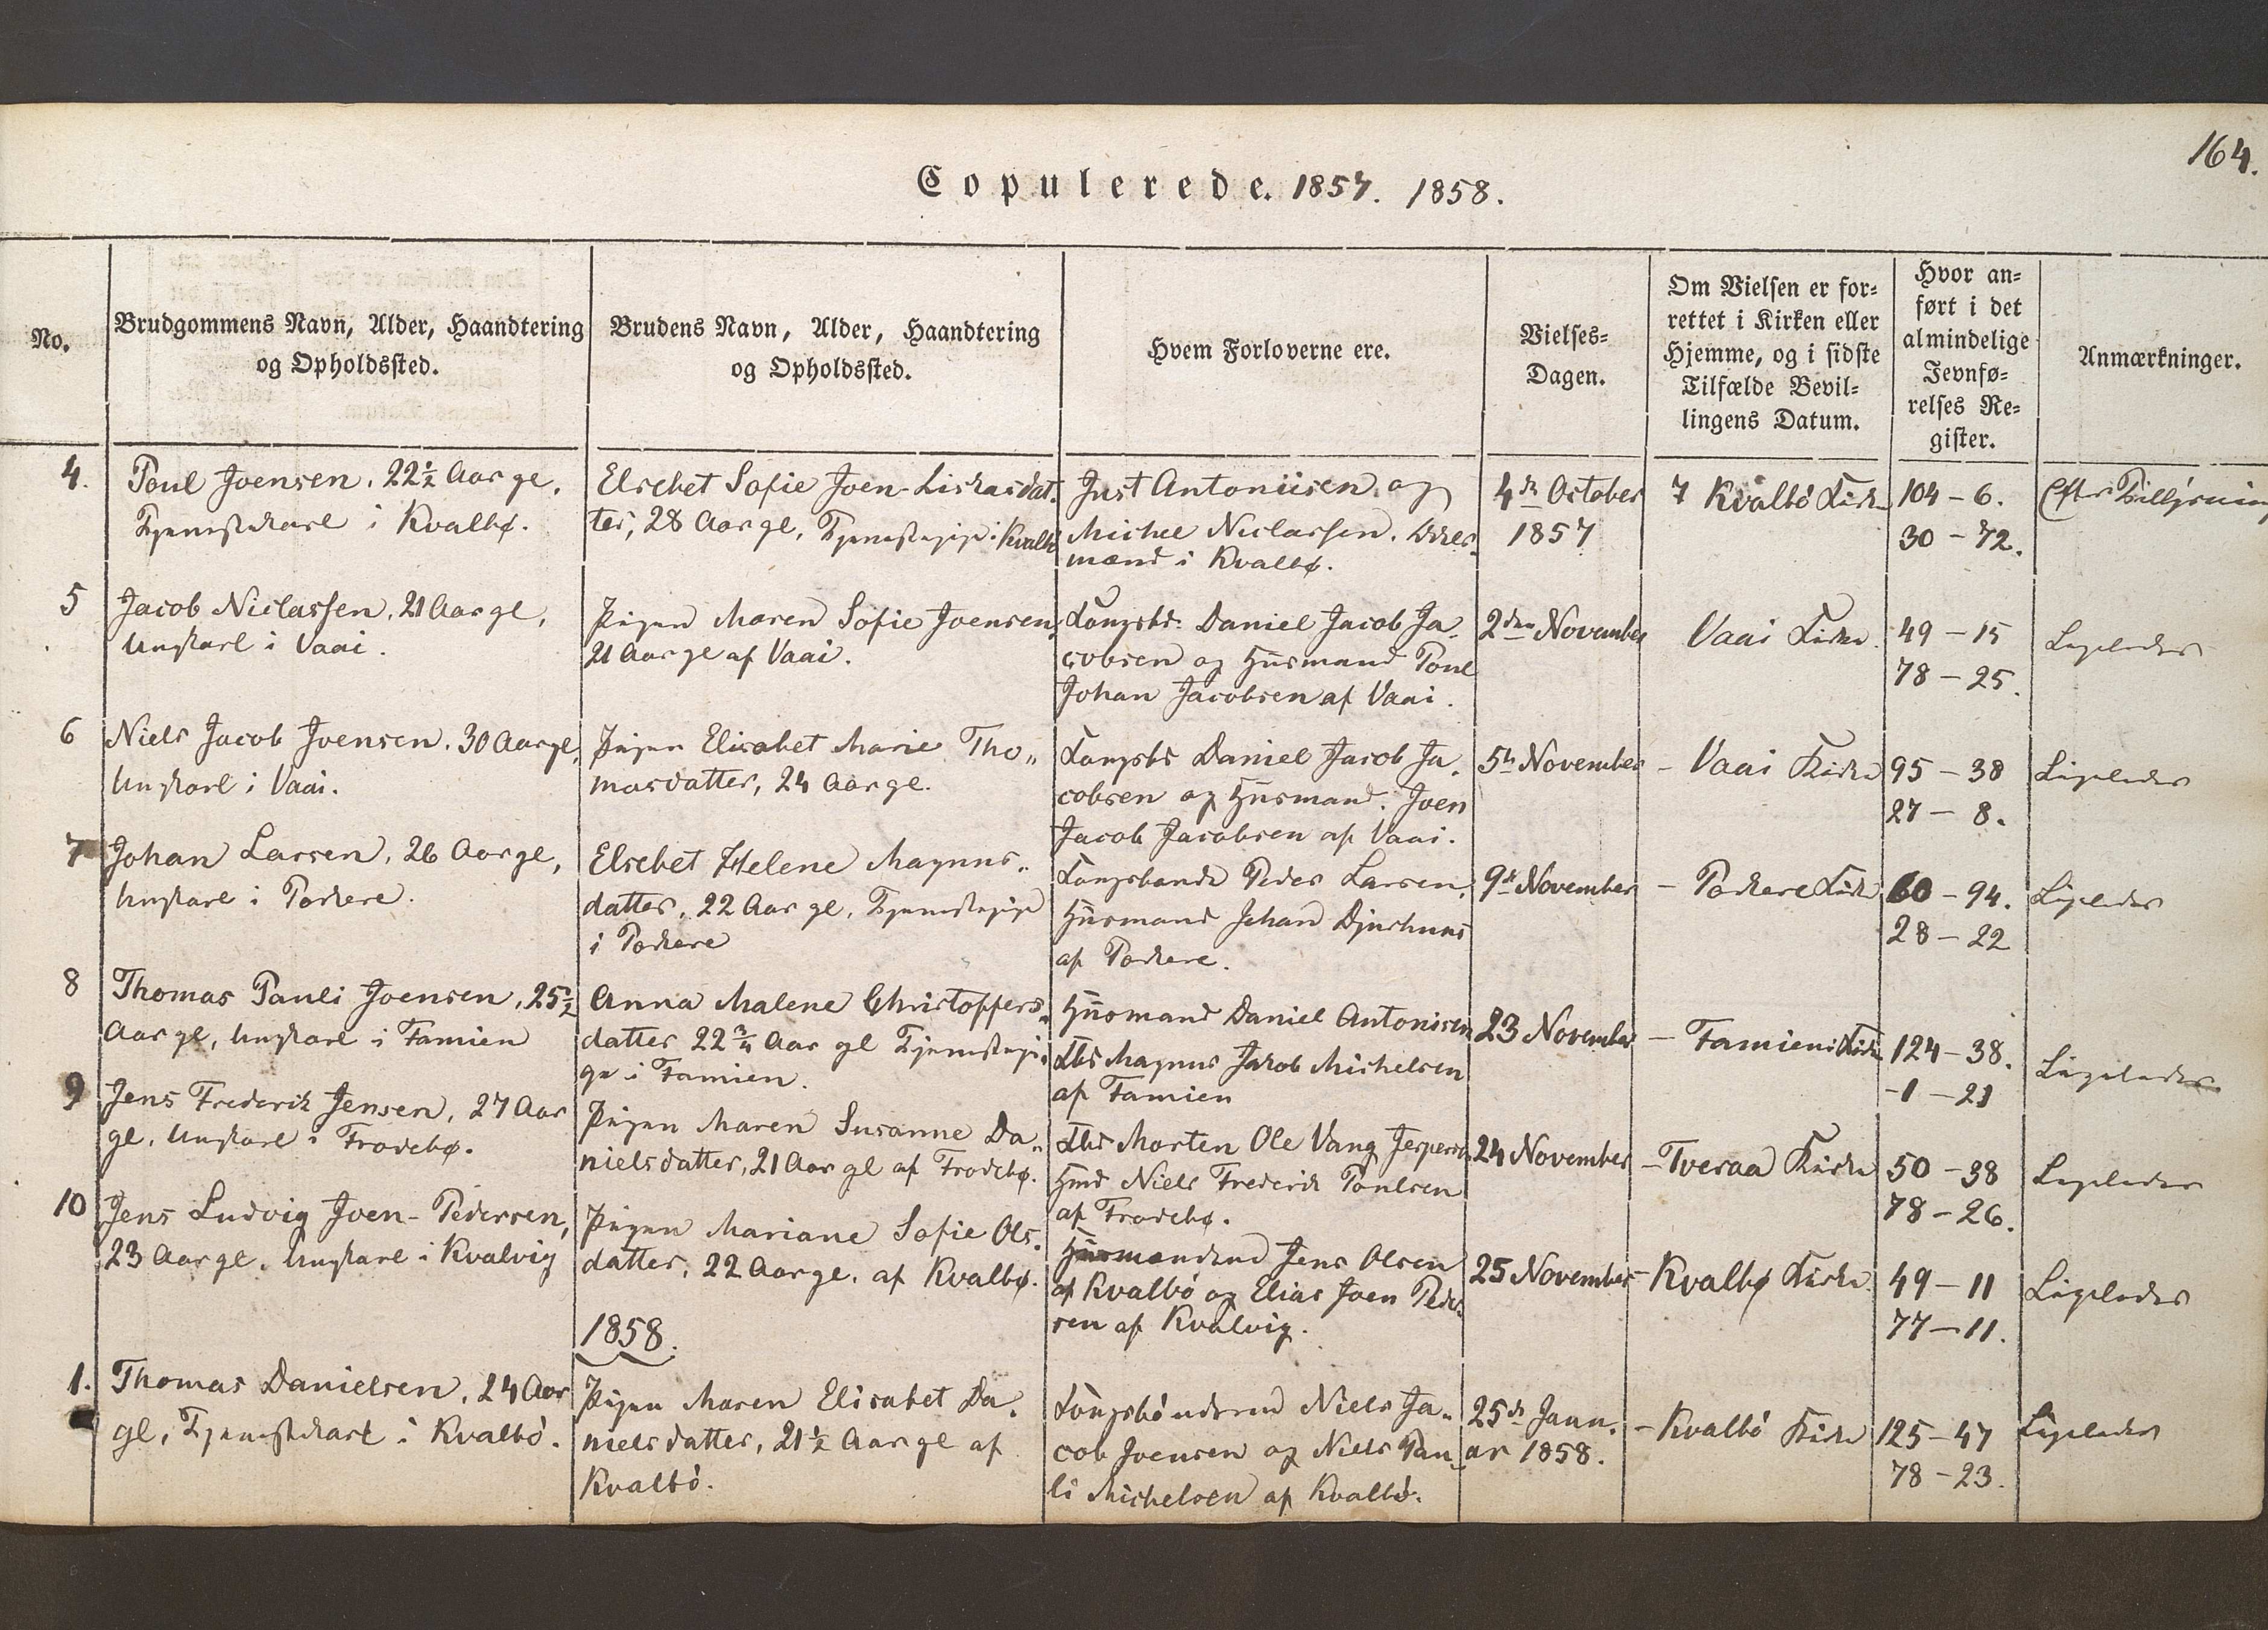 164.
Copulerede. 1857. 1858.
No.
Brudgommens Navn, Alder, Haandtering
og Opholdssted.
Brudens Navn, Alder, Haandtering
og Opholdssted.
Hvem Forloverne ere.
Vielses=
Dagen.
Om Vielsen er for=
rettet i Kirken eller
Hjemme, og i sidste
Tilfælde Bevil=
lingens Datum.
Hvor an=
ført i det
almindelige
Jevnfø=
relses Re=
gister.
Anmærkninger.
4.
Poul Joensen, 22½ Aar gl,
Tjenestekarl i Kvalbø.
Elsebet Sofie Joen-Liskasdat-
ter, 28 Aar gl, Tjenestepige i Kvalbø
Just Antoniisen og
Michel Niclassen,
mænd i Kvalbø.
4de October
1857
Kvalbö Kirke
104-6.
30-72.
Efter Tillysning
5
Jacob Niclassen, 21 Aar gl,
Ungkarl i Vaai.
Pigen Maren Sofie Joensen,
21 Aar gl af Vaai.
Kongsbd. Daniel Jacob Ja-
cobsen og Huusmand Poul
Johan Jacobsen af Vaai.
2den November
Vaai Kirke
49-15
78-25.
Ligeledes
6
Niels Jacob Joensen, 30 Aar gl,
Ungkarl i Vaai.
Pigen Elisabet Marie Tho„
masdatter, 24 Aar gl.
Kongsbd Daniel Jacob Ja-
cobsen og Huusmand. Joen
Jacob Jacobsen af Vaai.
5te November
- Vaai Kirke
95-38
27-8.
Ligeledes
7
Johan Larsen, 26 Aar gl,
Ungkarl i Porkere.
Elsebet Helene Magnus„
datter, 22 Aar gl, Tjenestepige
i Porkere
Kongsbonde Peder Larsen,
Huusmand Johan Djurhuus
af Porkere.
9de November
- Porkere Kirke
60-94.
28-22
Ligeledes
8
Thomas Pauli Joensen, 25½
Aar gl, Ungkarl i Famien
Anna Malene Christoffers„
datter 22¾ Aar gl Tjenestepi-
ge i Famien.
Huusmand Daniel Antonisen
Kbd Magnus Jakob Michelsen
af Famien
23 November
- Famiens Kirke
124-38.
-1-21
Ligeledes
9
Jens Frederik Jensen, 27 Aar
gl, Ungkarl i Frodebø.
Pigen Maren Susanne Da„
nielsdatter, 21 Aar gl af Frodebø.
Kbd Morten Ole Vang Jespersen
Hmd Niels Frederik Poulsen
af Frodebø.
24 November
- Tveraa Kirke
50-38
78-26.
Ligeledes
10
Jens Ludvig Joen-Pedersen,
23 Aar gl, Ungkarl i Kvalvig
Pigen Mariane Sofie Ols-
datter, 22 Aar gl. af Kvalbø.
Huusmændene Jens Olsen
af Kvalbö og Elias Joen Peder-
sen af Kvalvig.
25 November
- Kvalbø Kirke
49-11
77-11.
Ligeledes
1858.
1.
Thomas Danielsen, 24 Aar
gl, Tjenestekarl i Kvalbö.
Pigen Maren Elisabet Da-
nielsdatter, 21½ Aar gl af
Kvalbö.
Kongsbönderne Niels Ja„
cob Joensen og Niels Pau-
li Michelsen af Kvalbö.
25de Janu-
ar 1858.
- Kvalbö Kirke
125-47
78-23.
Ligeledes